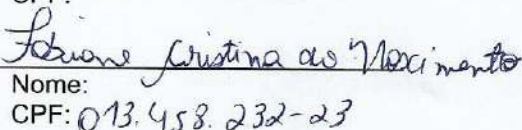 Fabiane Cristina do Nascimento
Nome:
CPF: 013.458.232-23